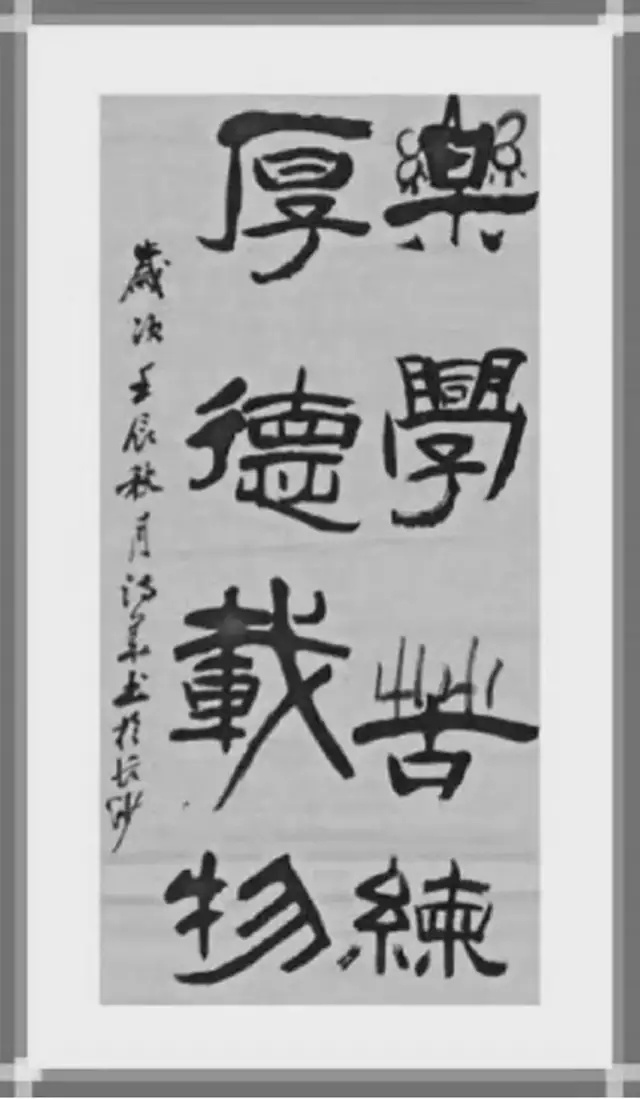 樂學苦練
厚德載物
歲次壬辰秋月鴻華书於長沙